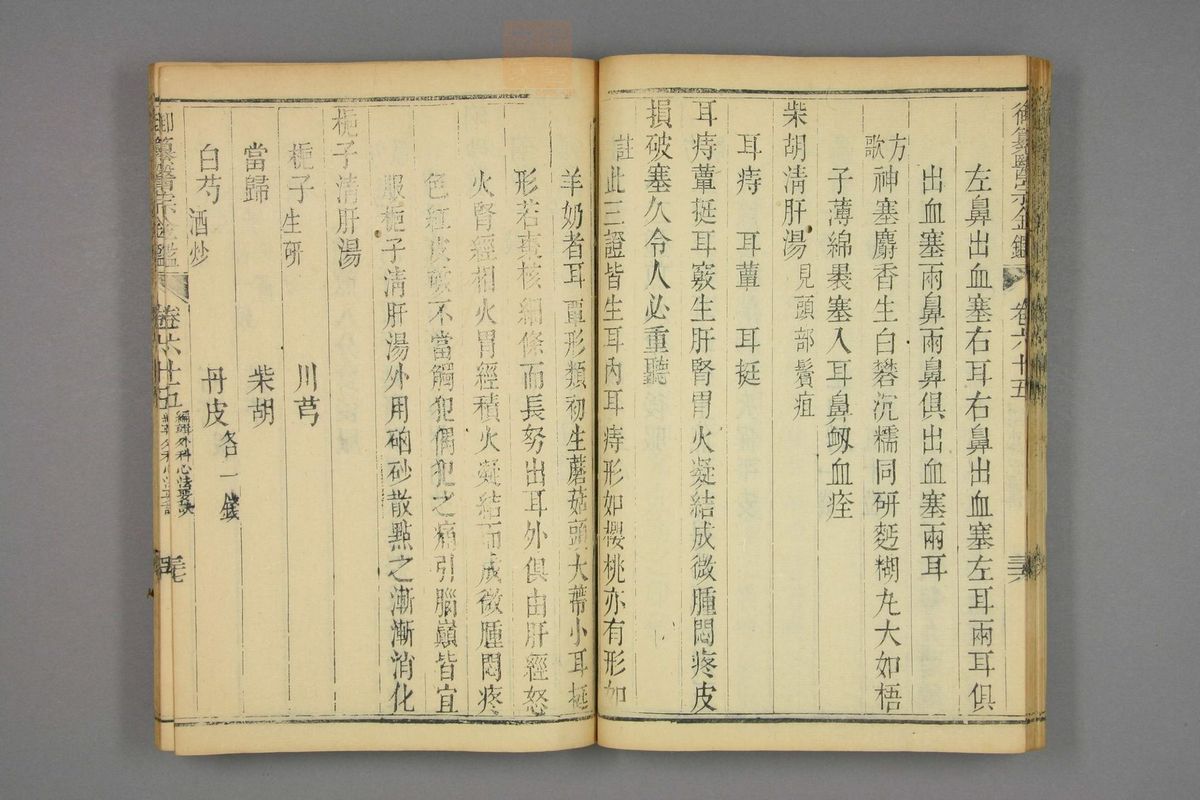 御纂醫宗金鑑
卷六十五
左鼻出血塞右耳右鼻出血塞左耳兩耳俱
出血塞兩鼻兩鼻俱出血塞兩耳
方歌
神塞麝香生白礬沉糯同研麫糊丸大如梧
子薄綿裹塞入耳鼻衂血痊
柴胡淸肝湯 見頭部鬢疽
耳痔 耳蕈 耳挺
耳痔蕈挺耳竅生肝腎胃火凝結成微腫悶疼皮
損破塞久令人必重聽
註 此三證皆生耳內耳痔形如櫻桃亦有形如
羊奶者耳蕈形類初生蘑菇頭大蒂小耳挺
形若棗核細條而長努出耳外俱由肝經怒
火腎經相火胃經積火凝結而成微腫悶疼
色紅皮破不當觸犯偶犯之痛引腦巔皆宜
服梔子淸肝湯外用硇砂散點之漸漸消化
梔子淸肝湯
梔子生研 川芎
當歸 柴胡
白芍酒炒 丹皮各一錢
御纂醫宗金鑑
卷六十五
編輯外科心法要訣